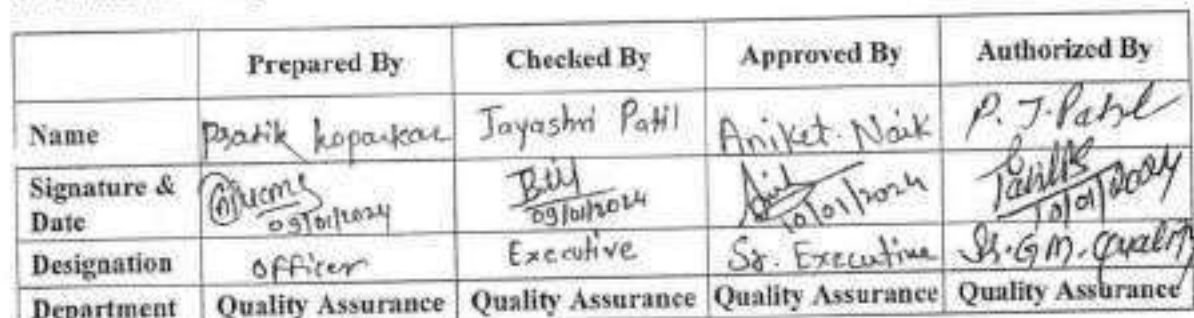 Prepared By Checked By Approved By Authorized By
Name Pratik Koparkar Jayashri Patil Aniket Naik P. J. Patil
Signature &
Date 09/01/2024 09/01/2024 10/01/2024 10/01/2024
Designation Officer Executive Sr. Executive Sr. G.M. (Quality)
Department Quality Assurance Quality Assurance Quality Assurance Quality Assurance